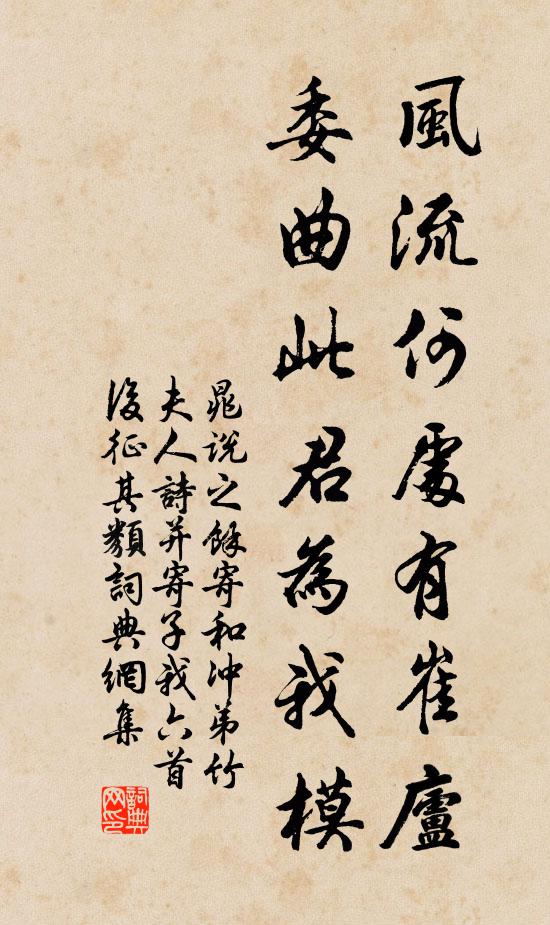 風流何處有崔廬
委曲此君為我模
晁說之餘寄和冲弟竹
夫人詩并寄子我六首
後征其類詞典網集
詞典网印